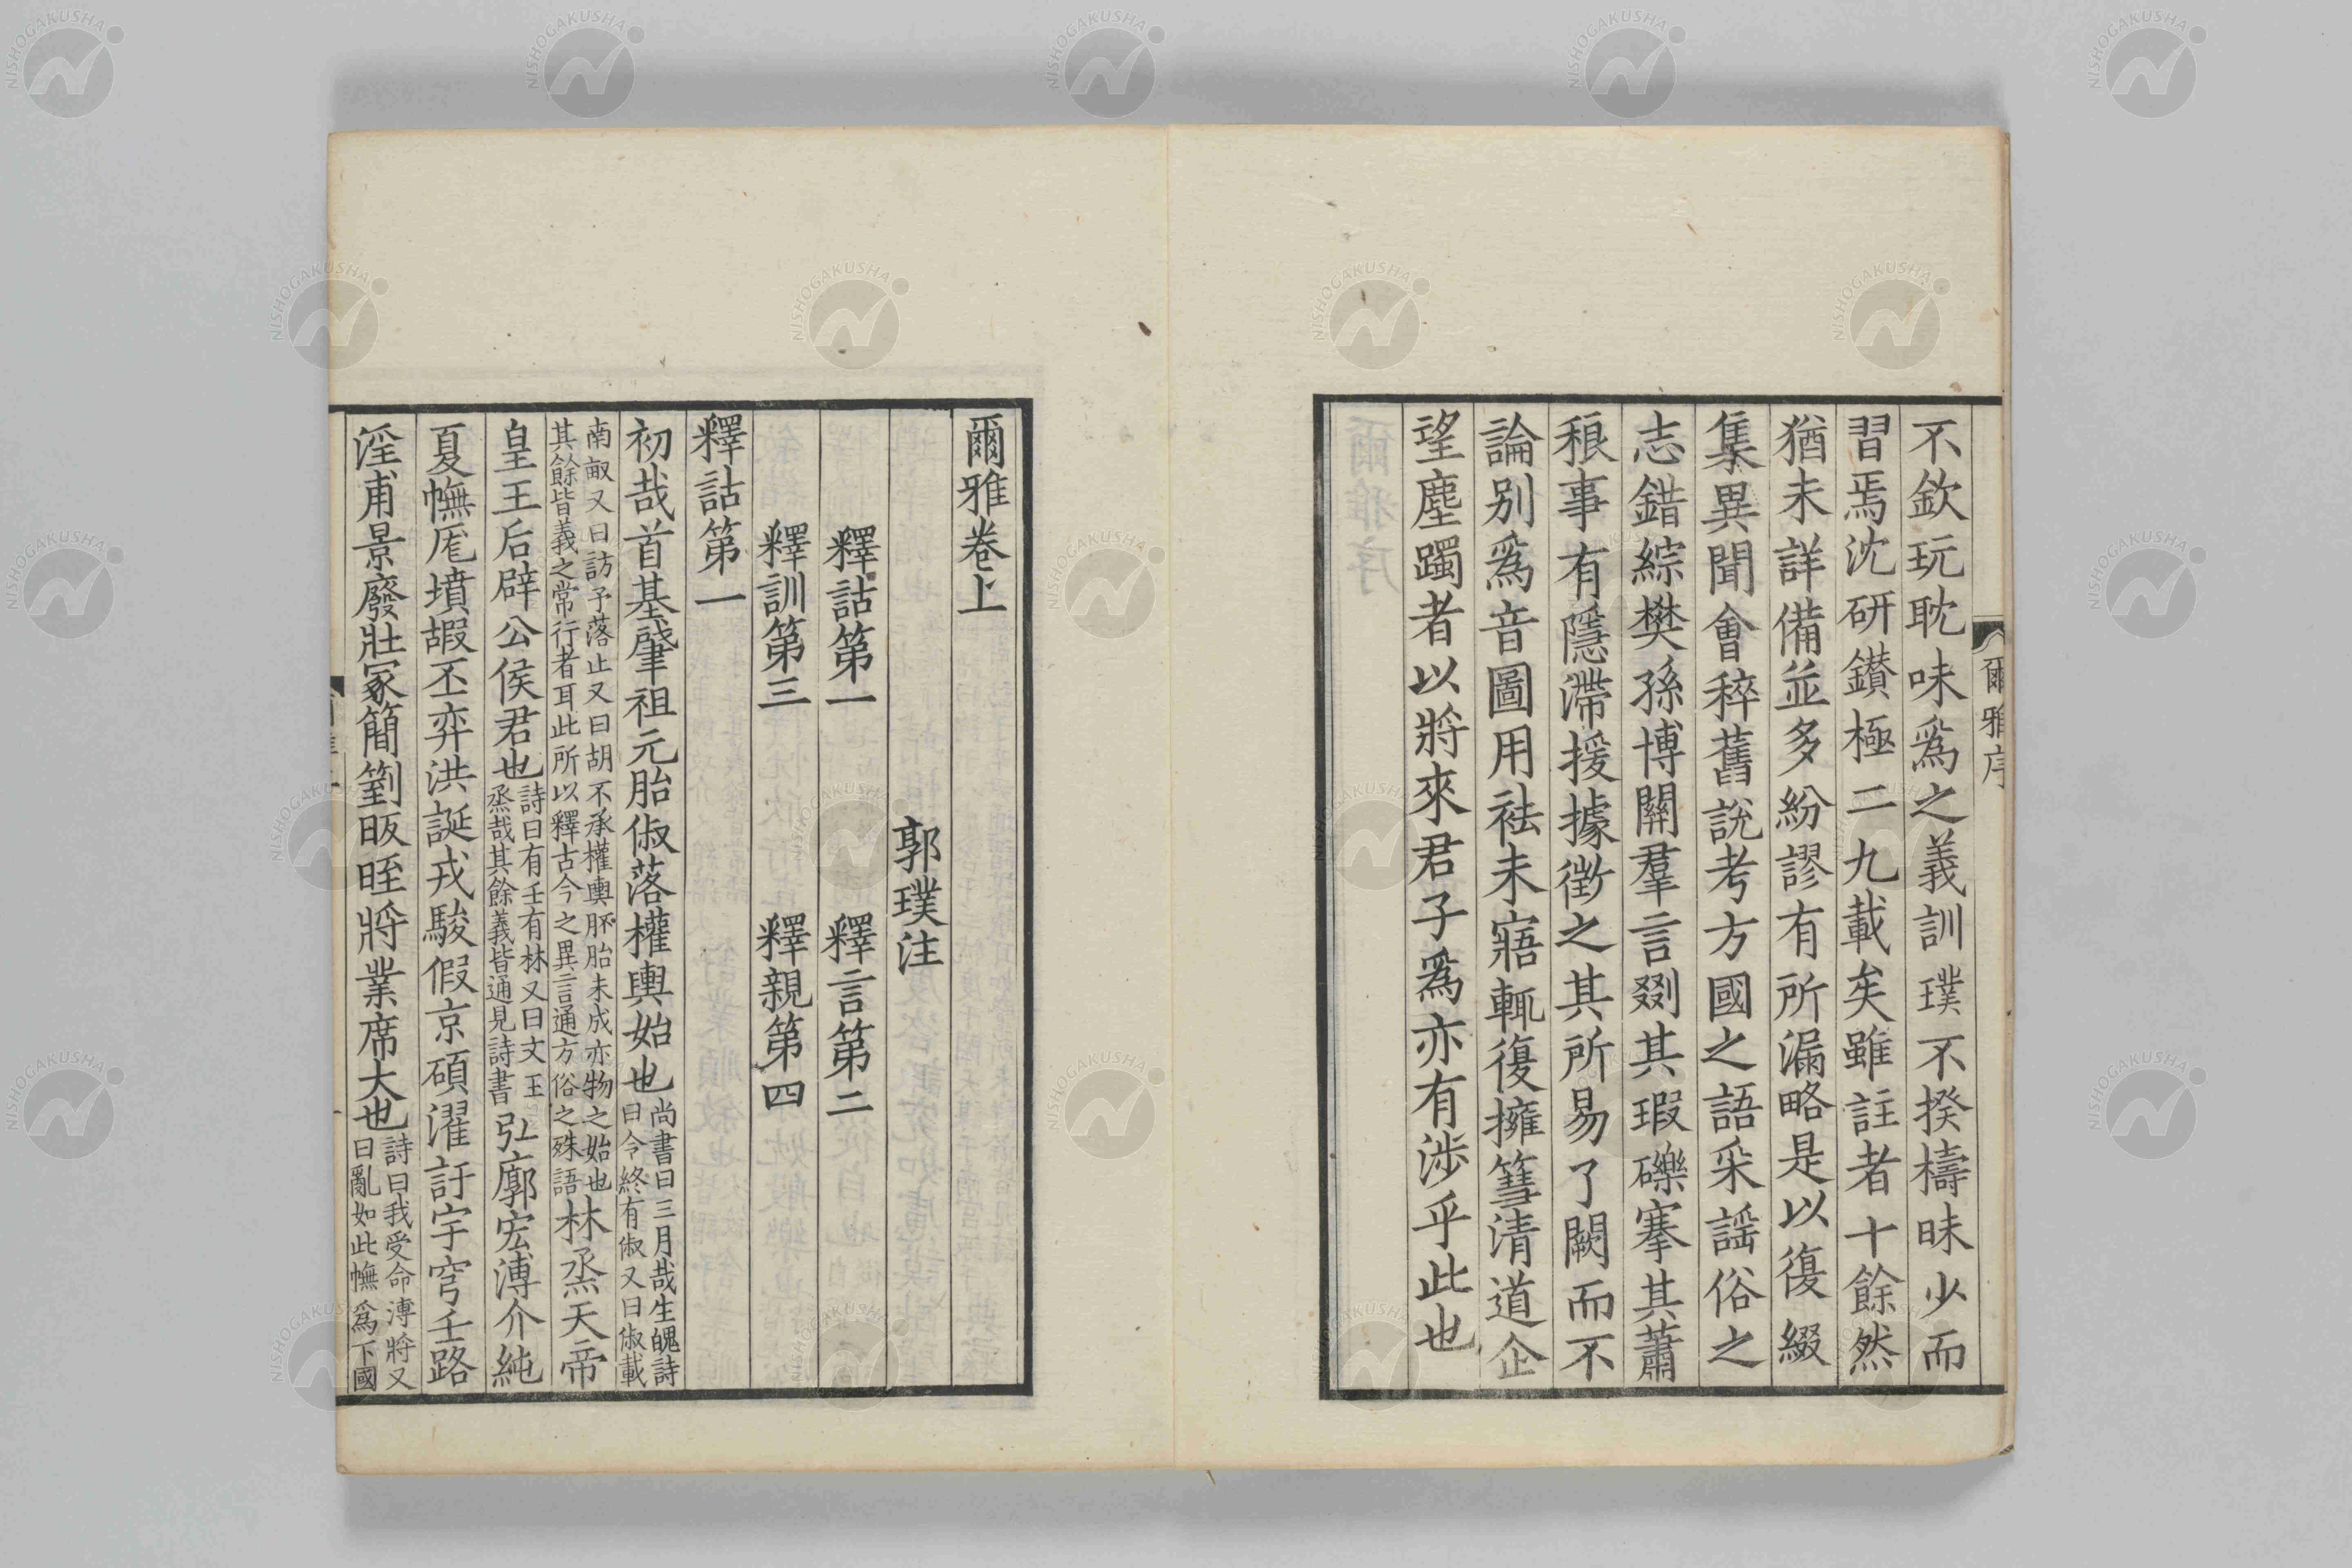 爾雅序
不欽玩耽味爲之義訓璞不揆檮昧少而
習焉沈研鑚極二九載矣雖註者十餘然
猶未詳備並多紛謬有所漏略是以復綴
集異聞會稡舊說考方國之語采謡俗之
志錯綜樊孫博關羣言剟其瑕礫搴其蕭
稂事有隱滯援據徵之其所易了闕而不
論別爲音圖用袪未寤輒復擁篲清道企
望塵躅者以將來君子爲亦有涉乎此也
爾雅卷上
郭璞注
釋詁第一 釋言第二
釋訓第三 釋親第四
釋詁第一
初哉首基肇祖元胎俶落權輿始也
尚書曰三月哉生魄詩
曰令終有俶又曰俶載
南畝又曰訪予落止又曰胡不承權輿胚胎未成亦物之始也
其餘皆義之常行者耳此所以釋古今之異言通方俗之殊語
林烝天帝
皇王后辟公侯君也
詩曰有壬有林又曰文王
烝哉其餘義皆通見詩書
弘廓宏溥介純
夏幠厖墳嘏丕弈洪誕戎駿假京碩濯訏宇穹壬路
淫甫景廢壯冢簡箌昄晊將業席大也
詩曰我受命溥將又
曰亂如此幠爲下國
NISHOGAKUSHA